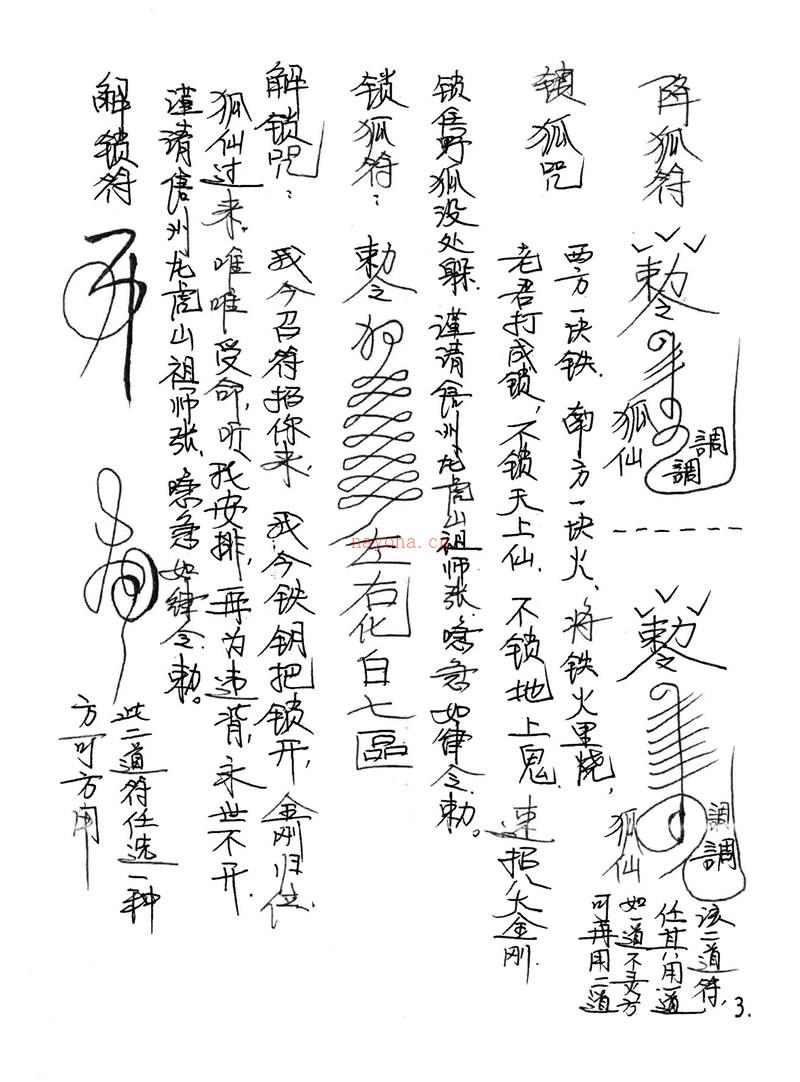 降狐符
敕令
狐仙
調
調
敕令
狐仙
調
調
该二道符,
任其八用一道
如一道不灵方
可再用二道
锁狐咒
西方一块铁.南方一块火、将铁火里烧,
老君打成锁,不锁天上仙.不锁地上鬼.速招八大金刚.
锁住野狐没处躲.谨请信州龙虎山祖师张.唵急如律令.勅。
锁狐符:
勅令
左右化白七區
解锁咒:
我今召符招你来,我今铁钥把锁开,金刚归位.
狐仙过来.唯唯受命,听我安排,再为违背,永世不开.
谨请信州龙虎山祖师张.唵急如律令.勅。
解锁符
此二道符任选一种
方可方用
3.
nayona.cn